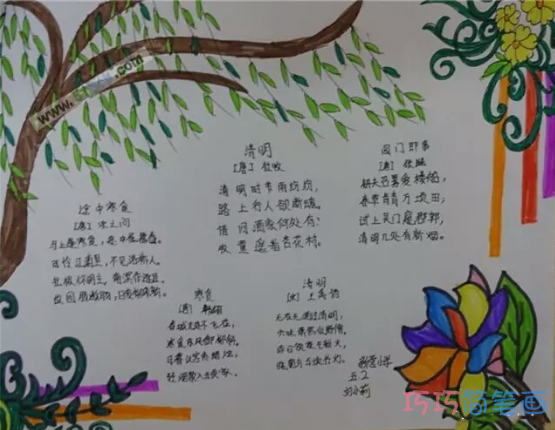 清明
[唐] 杜牧
清明时节雨纷纷,
路上行人欲断魂。
借问酒家何处有?
牧童遥指杏花村。
阊门即事
[唐] 张继
耕夫召募爱楼船,
春草青青万顷田;
试上吴门窥郡郭,
清明几处有新烟。
途中寒食
[唐] 宋之问
马上逢寒食,途中属暮春。
可怜江浦望,不见洛桥人。
北极怀明主,南溟作逐臣。
故园肠断处,日夜柳条新。
寒食
[唐] 韩翃
春城无处不飞花,
寒食东风御柳斜。
日暮汉宫传蜡烛,
轻烟散入五侯家。
清明
[宋] 王禹偁
无花无酒过清明,
兴味萧然似野僧。
昨日邻家乞新火,
小学
五.2
巧巧简笔画